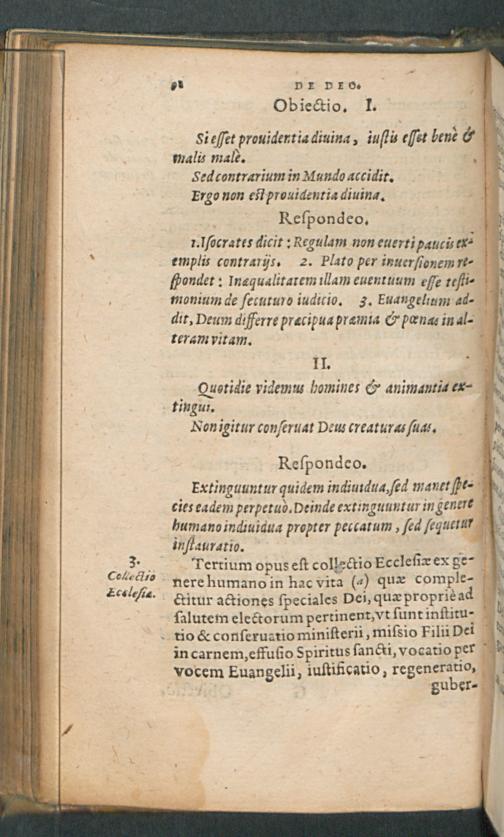 DE DEO.
Obiectio. I.
Si eſſet prouidentia diuina, iuſtis eſſet benè &
malis malè.
Sed contrarium in Mundo accidit.
Ergo non eſt prouidentia diuina.
Reſpondeo.
1. Iſocrates dicit : Regulam non euerti paucis ex-
emplis contrarijs. 2. Plato per inuerſionem re-
ſpondet : Inæqualitatem illam euentuum eſſe teſti-
monium de ſecuturo iudicio. 3. Euangelium ad-
dit, Deum differre præcipua præmia & pœnas in al-
teram vitam.
II.
Quotidie videmus homines & animantia ex-
tingui.
Non igitur conſeruat Deus creaturas ſuas.
Reſpondeo.
Extinguuntur quidem indiuidua, ſed manet ſpe-
cies eadem perpetuò. Deinde extinguuntur in genere
humano indiuidua propter peccatum, ſed ſequetur
inſtauratio.
3.
Collectio
Eccleſiæ.
Tertium opus eſt collectio Eccleſiæ ex ge-
nere humano in hac vita (a) quæ comple-
ctitur actiones ſpeciales Dei, quæ propriè ad
ſalutem electorum pertinent, vt ſunt inſtitu-
tio & conſeruatio miniſterii, miſsio Filii Dei
in carnem, effuſio Spiritus ſancti, vocatio per
vocem Euangelii, iuſtificatio, regeneratio,
guber-